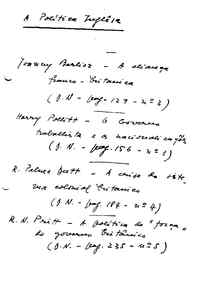 A Política Inglêsa
Joanny Berlioz - A aliança
franco-britanica
(D.N - pag. 129 - nº 2)
Harry Pollitt - O Governo
trabalhista e a nacionalização
(D.N. - pag. 156 - nº 1)
R. Palme Dutt - A crise do siste-
ma colonial britanico
(D.N. - pag. 184 - nº 4)
R. N. Pritt - A política de "força"
do governo britânico
(D.N. - pag. 235 - nº 5)